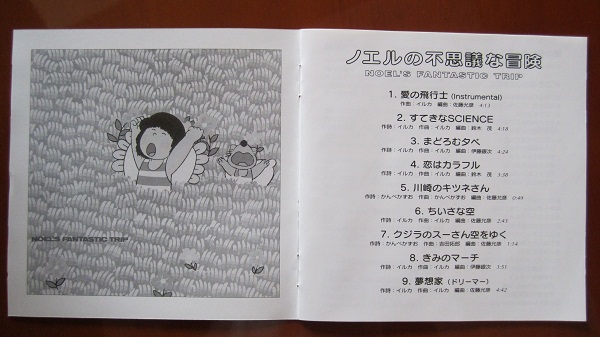 NOEL'S FANTASTIC TRIP
ノエルの不思議な冒険
NOEL'S FANTASTIC TRIP
1. 愛の飛行士 (Instrumental)
作曲：イルカ 編曲：佐藤允彦 4:13
2. すてきなSCIENCE
作詩：イルカ 作曲：イルカ 編曲：鈴木 茂 4:18
3. まどろむ夕べ
作詩：イルカ 作曲：イルカ 編曲：伊藤銀次 4:24
4. 恋はカラフル
作詩：イルカ 作曲：イルカ 編曲：鈴木 茂 3:38
5. 川崎のキツネさん
作詩：かんべかずお 作曲：かんべかずお 編曲：佐藤允彦 0:49
6. ちいさな空
作詩：イルカ 作曲：イルカ 編曲：佐藤允彦 2:45
7. クジラのスーさん空をゆく
作詩：かんべかずお 作曲：吉田拓郎 編曲：佐藤允彦 1:14
8. きみのマーチ
作詩：イルカ 作曲：イルカ 編曲：伊藤銀次 3:51
9. 夢想家（ドリーマー）
作詩：イルカ 作曲：イルカ 編曲：佐藤允彦 4:42